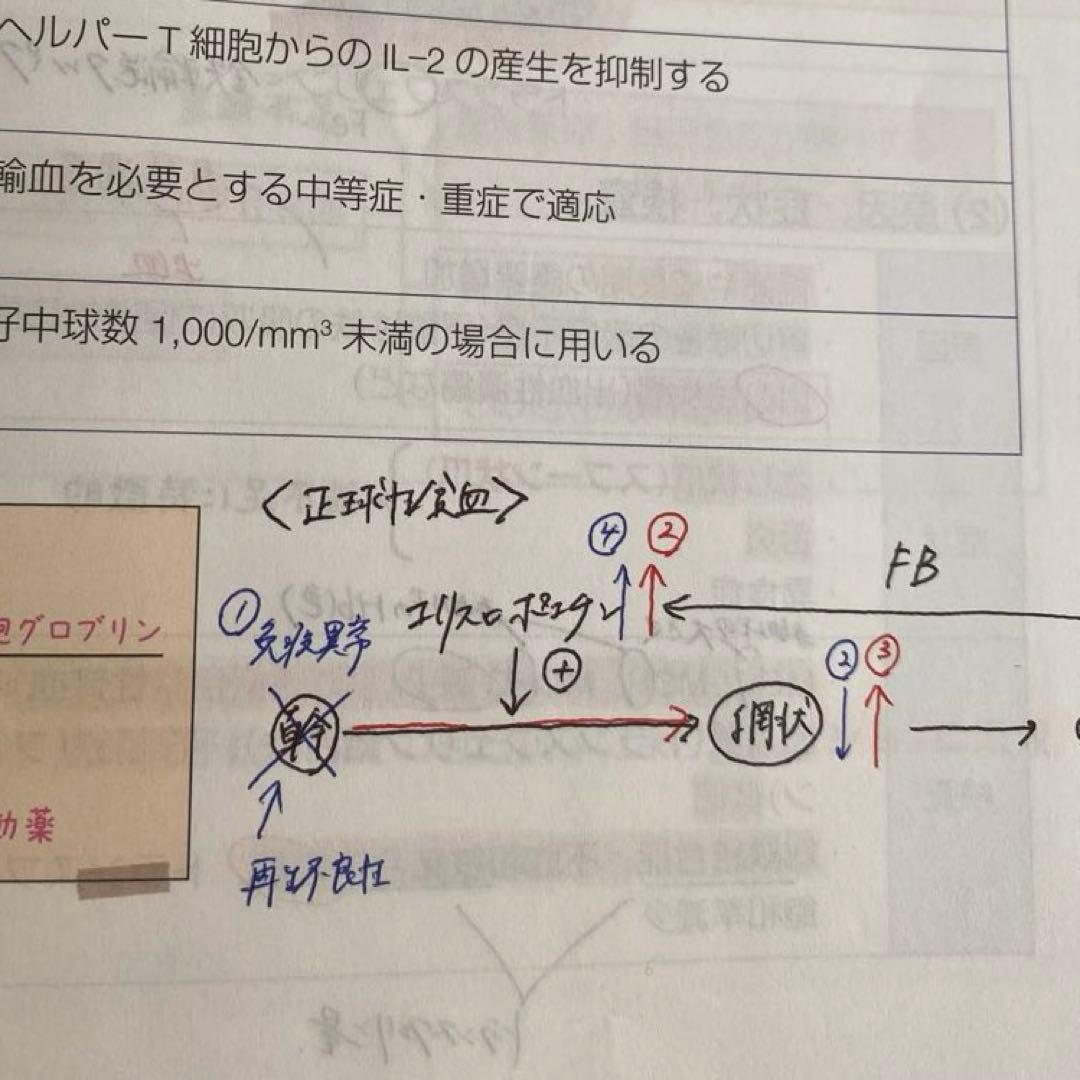 ヘルパーT細胞からのIL-2の産生を抑制する
輸血を必要とする中等症・重症で適応
好中球数1,000/mm³未満の場合に用いる
〈正球性貧血〉
④ ②
FB
グロブリン
①免疫異常
エリスロポエチン
⊕
② ③
幹
網状
薬
再生不良性